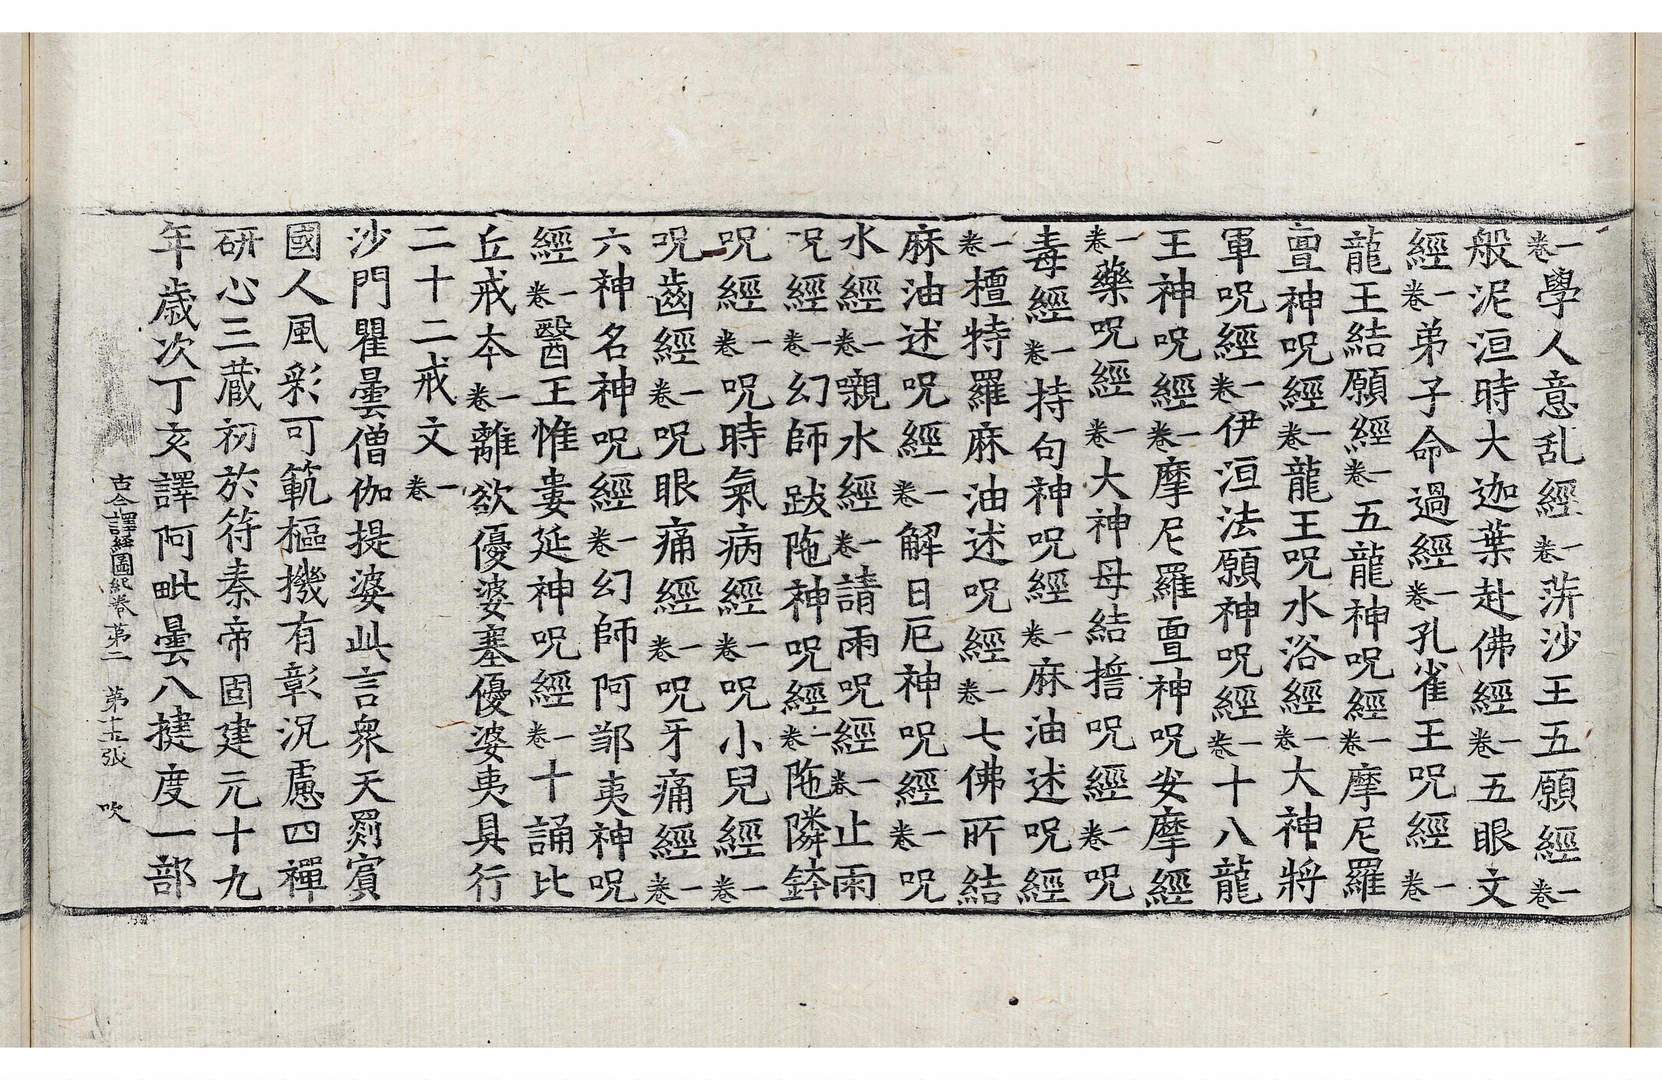 一卷學人意乱經一卷蓱沙王五願經一卷
般泥洹時大迦葉赴佛經一卷五眼文
經一卷弟子命過經一卷孔雀王呪經一卷
龍王結願經一卷五龍神呪經一卷摩尼羅
亶神呪經一卷龍王呪水浴經一卷大神將
軍呪經一卷伊洹法願神呪經一卷十八龍
王神呪經一卷摩尼羅亶神呪安摩經
一卷藥呪經一卷大神母結誓呪經一卷呪
毒經一卷持句神呪經一卷麻油述呪經
一卷檀特羅麻油述呪經一卷七佛所結
麻油述呪經一卷解日厄神呪經一卷呪
水經一卷嚫水經一卷請雨呪經一卷止雨
呪經一卷幻師跋陁神呪經二卷陁隣鉢
呪經一卷呪時氣病經一卷呪小兒經一卷
呪齒經一卷呪眼痛經一卷呪牙痛經一卷
六神名神呪經一卷幻師阿鄒夷神呪
經一卷醫王惟婁延神呪經一卷十誦比
丘戒夲一卷離欲優婆塞優婆夷具行
二十二戒文一卷
沙門瞿曇僧伽提婆此言衆天罽賔
國人風彩可範樞機有彰況慮四禪
研心三藏初於符秦帝固建元十九
年歲次丁亥譯阿毗曇八揵度一部
古今譯經圖紀卷第二 第十五張 吹